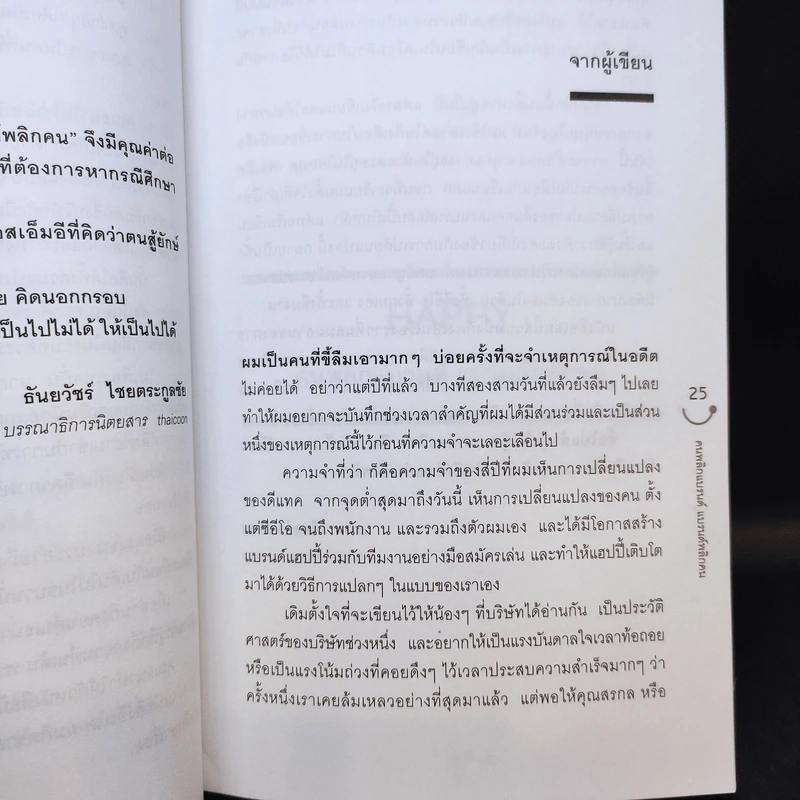 พลิกคน” จึงมีคุณค่าต่อ
ที่ต้องการหากรณีศึกษา
อสเอ็มอีที่คิดว่าตนสู้ยักษ์
ย คิดนอกกรอบ
เป็นไปไม่ได้ ให้เป็นไปได้
ธันยวัชร์ ไชยตระกูลชัย
บรรณาธิการนิตยสาร thaicoon
จากผู้เขียน
ผมเป็นคนที่ขี้ลืมเอามากๆ บ่อยครั้งที่จะจำเหตุการณ์ในอดีต
ไม่ค่อยได้ อย่าว่าแต่ปีที่แล้ว บางทีสองสามวันที่แล้วยังลืมๆ ไปเลย
ทำให้ผมอยากจะบันทึกช่วงเวลาสำคัญที่ผมได้มีส่วนร่วมและเป็นส่วน
หนึ่งของเหตุการณ์นี้ไว้ก่อนที่ความจำจะเลอะเลือนไป
ความจำที่ว่า ก็คือความจำของสี่ปีที่ผมเห็นการเปลี่ยนแปลง
ของดีแทค จากจุดต่ำสุดมาถึงวันนี้ เห็นการเปลี่ยนแปลงของคน ตั้ง
แต่ซีอีโอ จนถึงพนักงาน และรวมถึงตัวผมเอง และได้มีโอกาสสร้าง
แบรนด์แฮปปี้ร่วมกับทีมงานอย่างมือสมัครเล่น และทำให้แฮปปี้เติบโต
มาได้ด้วยวิธีการแปลกๆ ในแบบของเราเอง
เดิมตั้งใจที่จะเขียนไว้ให้น้องๆ ที่บริษัทได้อ่านกัน เป็นประวัติ
ศาสตร์ของบริษัทช่วงหนึ่ง และอยากให้เป็นแรงบันดาลใจเวลาท้อถอย
หรือเป็นแรงโน้มถ่วงที่คอยดึงๆ ไว้เวลาประสบความสำเร็จมากๆ ว่า
ครั้งหนึ่งเราเคยล้มเหลวอย่างที่สุดมาแล้ว แต่พอให้คุณสรกล หรือ
25
คนพลิกแบรนด์ แบรนด์พลิกคน